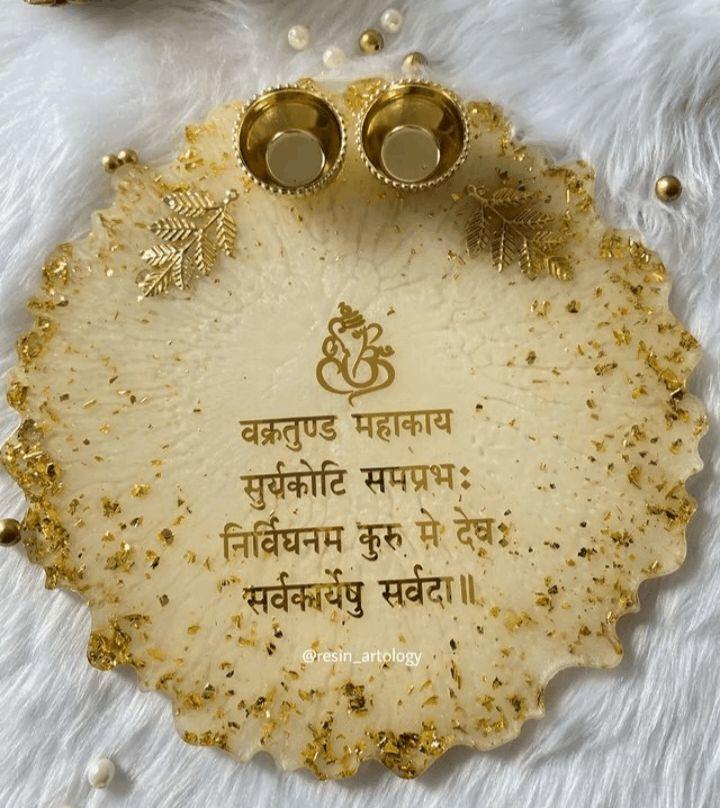 वक्रतुण्ड महाकाय
सुर्यकोटि समप्रभः
निर्विघनम कुरु मे देवः
सर्वकार्येषु सर्वदा॥
@resin_artology